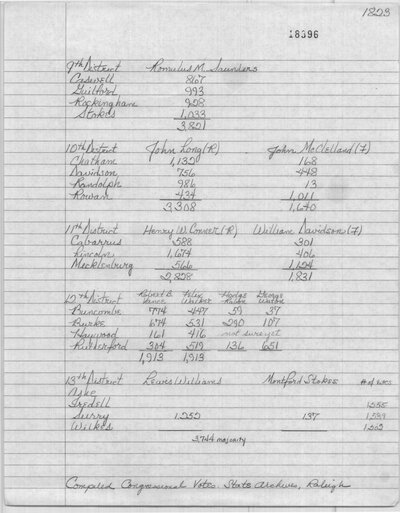 1823
18396
9th District Romulus M. Saunders
Caswell 867
Guilford 993
Rockingham 928
Stokes 1,033
3,821
10th District John Long (R) John McClelland (F)
Chatham 1,132 168
Davidson 756 448
Randolph 986 13
Rowan 434 1,011
3,308 1,640
11th District Henry W. Conner (R) William Davidson (F)
Cabarrus 588 301
Lincoln 1,674 406
Mecklenburg 566 1,124
2,828 1,831
12th District Robert B. Vance Felix Walker Hodge George
Buncombe 774 447 59 37
Burke 674 531 290 107
Haywood 161 416 not sure yet
Rutherford 304 519 136 651
1,913 1,913
13th District Lewis Williams Montford Stokes # of votes
Ashe
Iredell 1255
Surry 1,252 137 1,389
Wilkes 1202
3,744 majority
Compiled Congressional Votes. State Archives, Raleigh